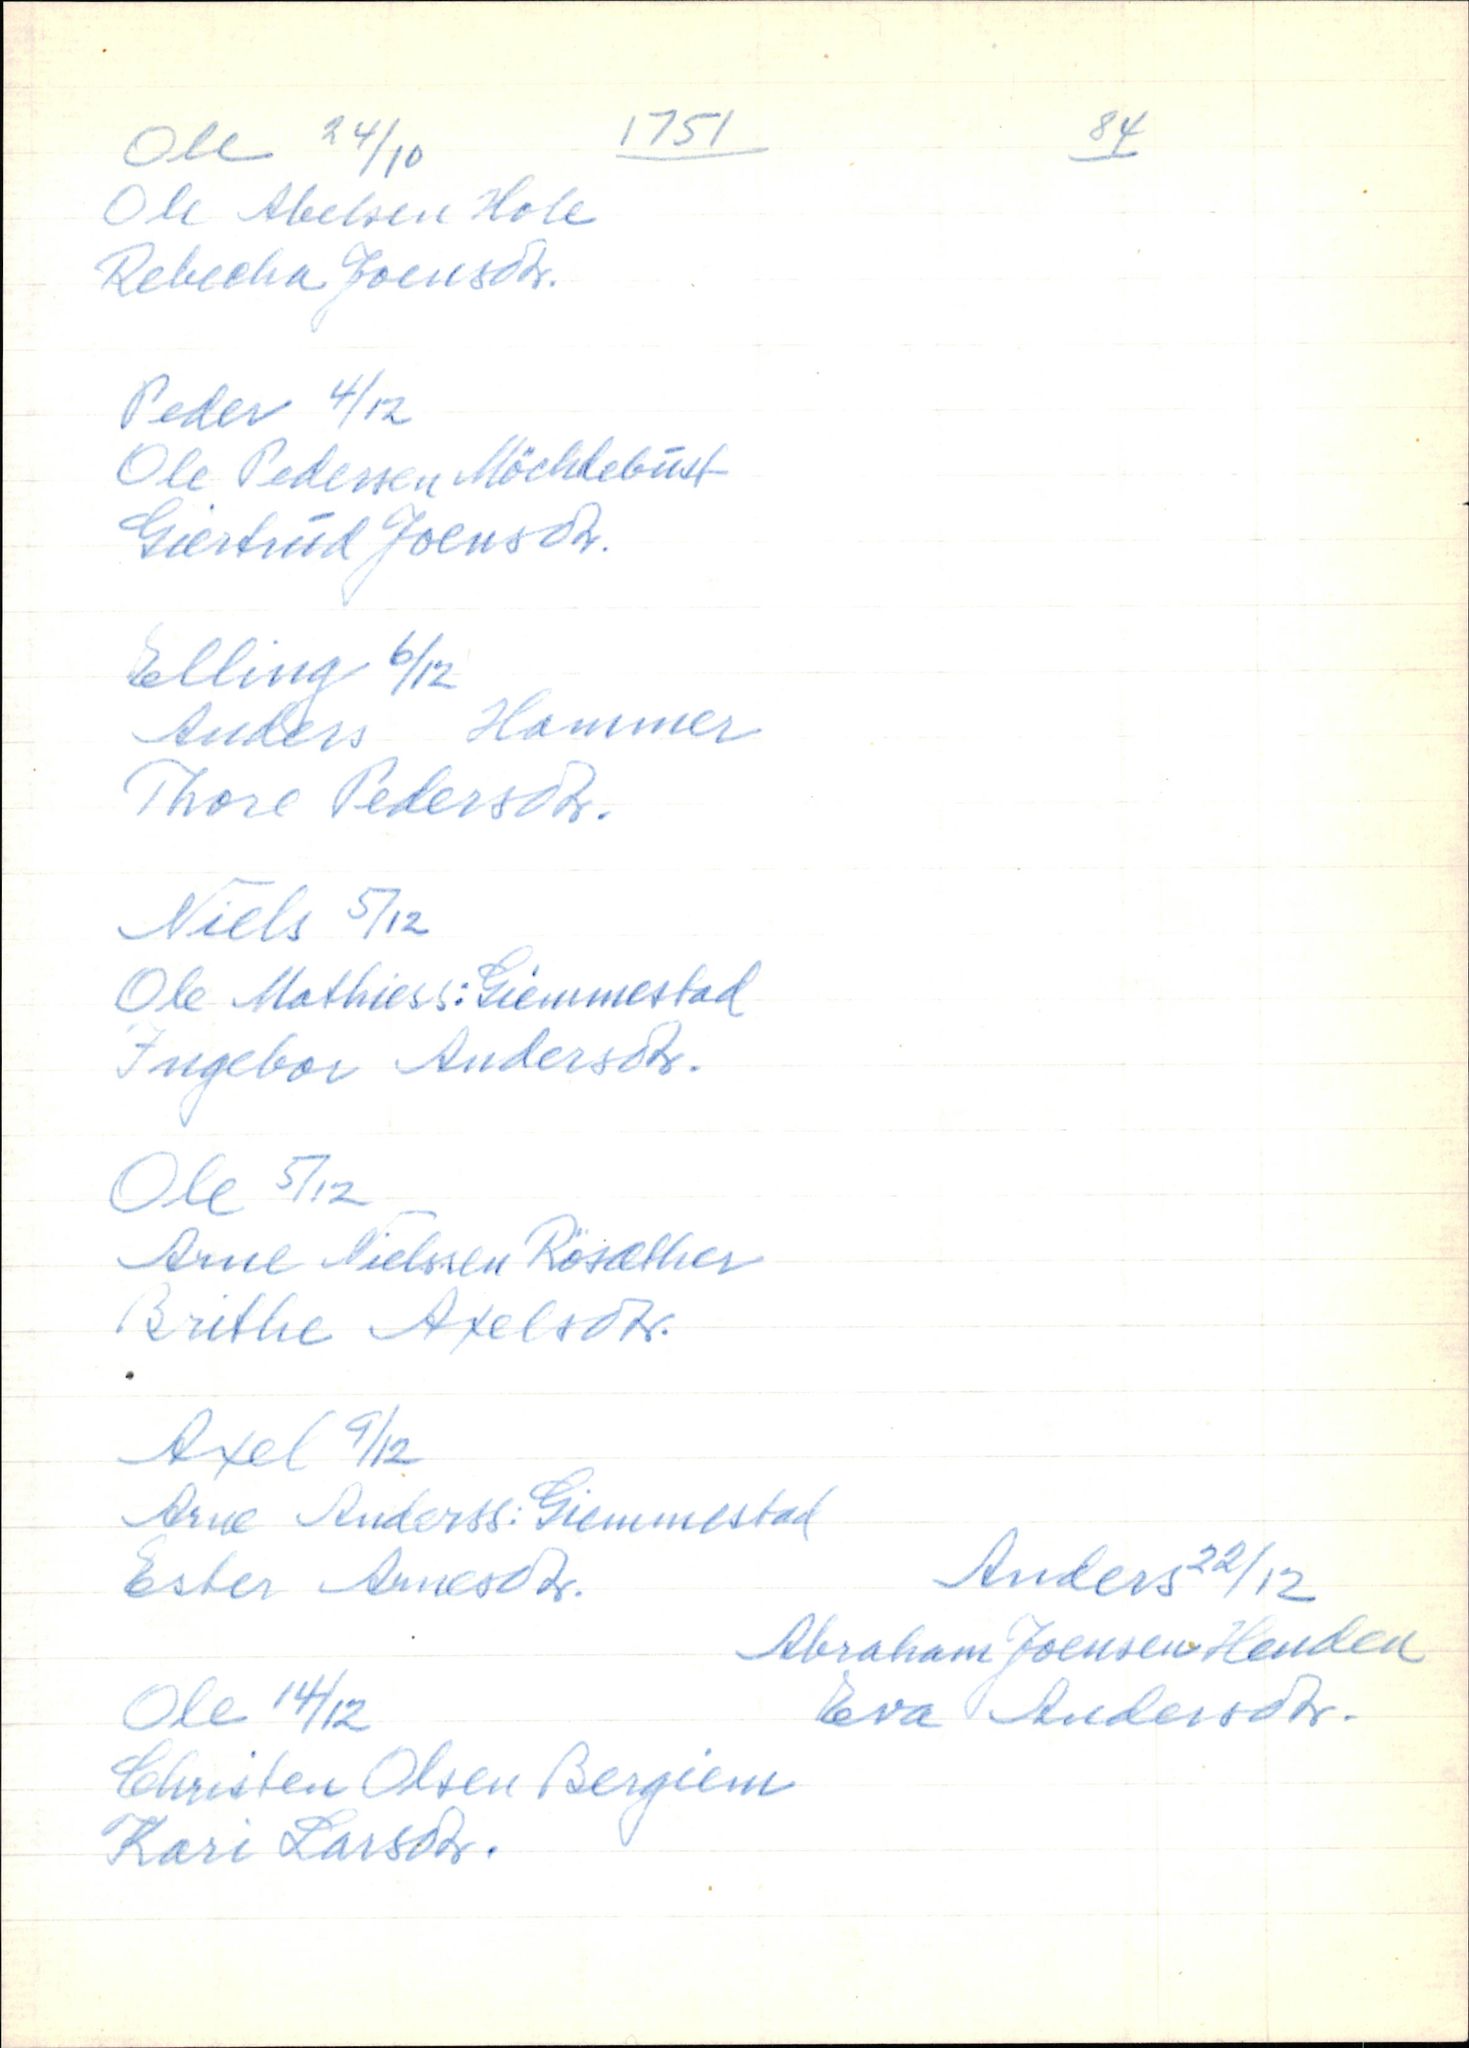 Ole 24/10 1751 84
Ole Abelsen Hole
Rebecha Joensdtr.
Peder 4/12
Ole Pederssen Möchlebust
Giertrud Joensdtr.
Elling 6/12
Anders Hammer
Thore Pedersdtr.
Niels 5/12
Ole Mathiess: Giemmestad
Ingebor Andersdtr.
Ole 5/12
Arne Nielssen Rösæther
Brithe Axelsdtr.
Axel 9/12
Arne Anderss: Giemmestad
Ester Arnesdtr.
Ole 14/12
Christen Olsen Bergiem
Kari Larsdtr.
Anders 22/12
Abraham Joensen Henden
Eva Andersdtr.